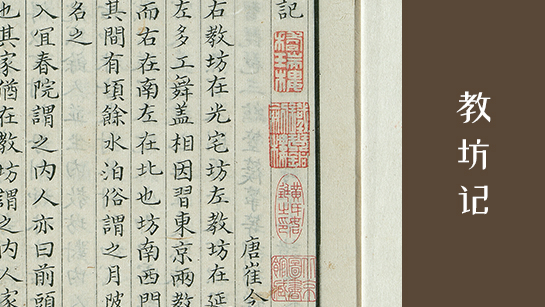 教坊记
記
唐崔令
右教坊在光宅坊左教坊在延
左多工舞蓋相因習東京兩教
而右在南左在北也坊南西門
其間有頃餘水泊俗謂之月陂
名之
入宜春院謂之內人亦曰前頭
也其家猶在教坊謂之內人家